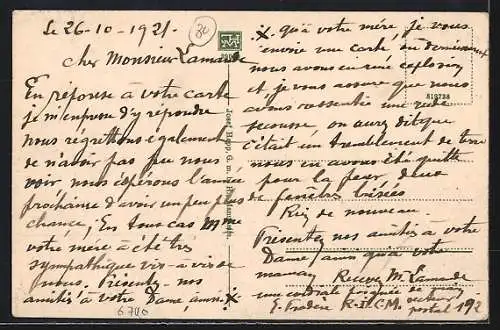 Le 26-10-1921.
Cher Monsieur Lamande
En réponse à votre carte
je m'enprese d'y répondre
nous régrettons également
de n'avoir pas pu nous
voir nous éspérons l'année
prochaine d'avoir un peu plus de
chance, En tous cas Mme
votre mère a été très
sympathique vis-à-vis de
nous. Présentez nos
amitiés à votre Dame, ainsi X
6740
X qu'à votre mère, je vous
envoie une carte ou dernièrement
nous avons eu une explosion
et je vous assure que nous
avons ressentie une rude
secousse, on aurez dit que
c'était un tremblement de terre
nous en avons été quitte
pour la peur, deux
fenêtres brisées
Rien de nouveau.
Présentez nos amitiés à votre
Dame, ainsi qu'à votre
maman Recevez Mr Lamande
une cordiale poignée de main
E. R.I.C.M. secteur
postal 192